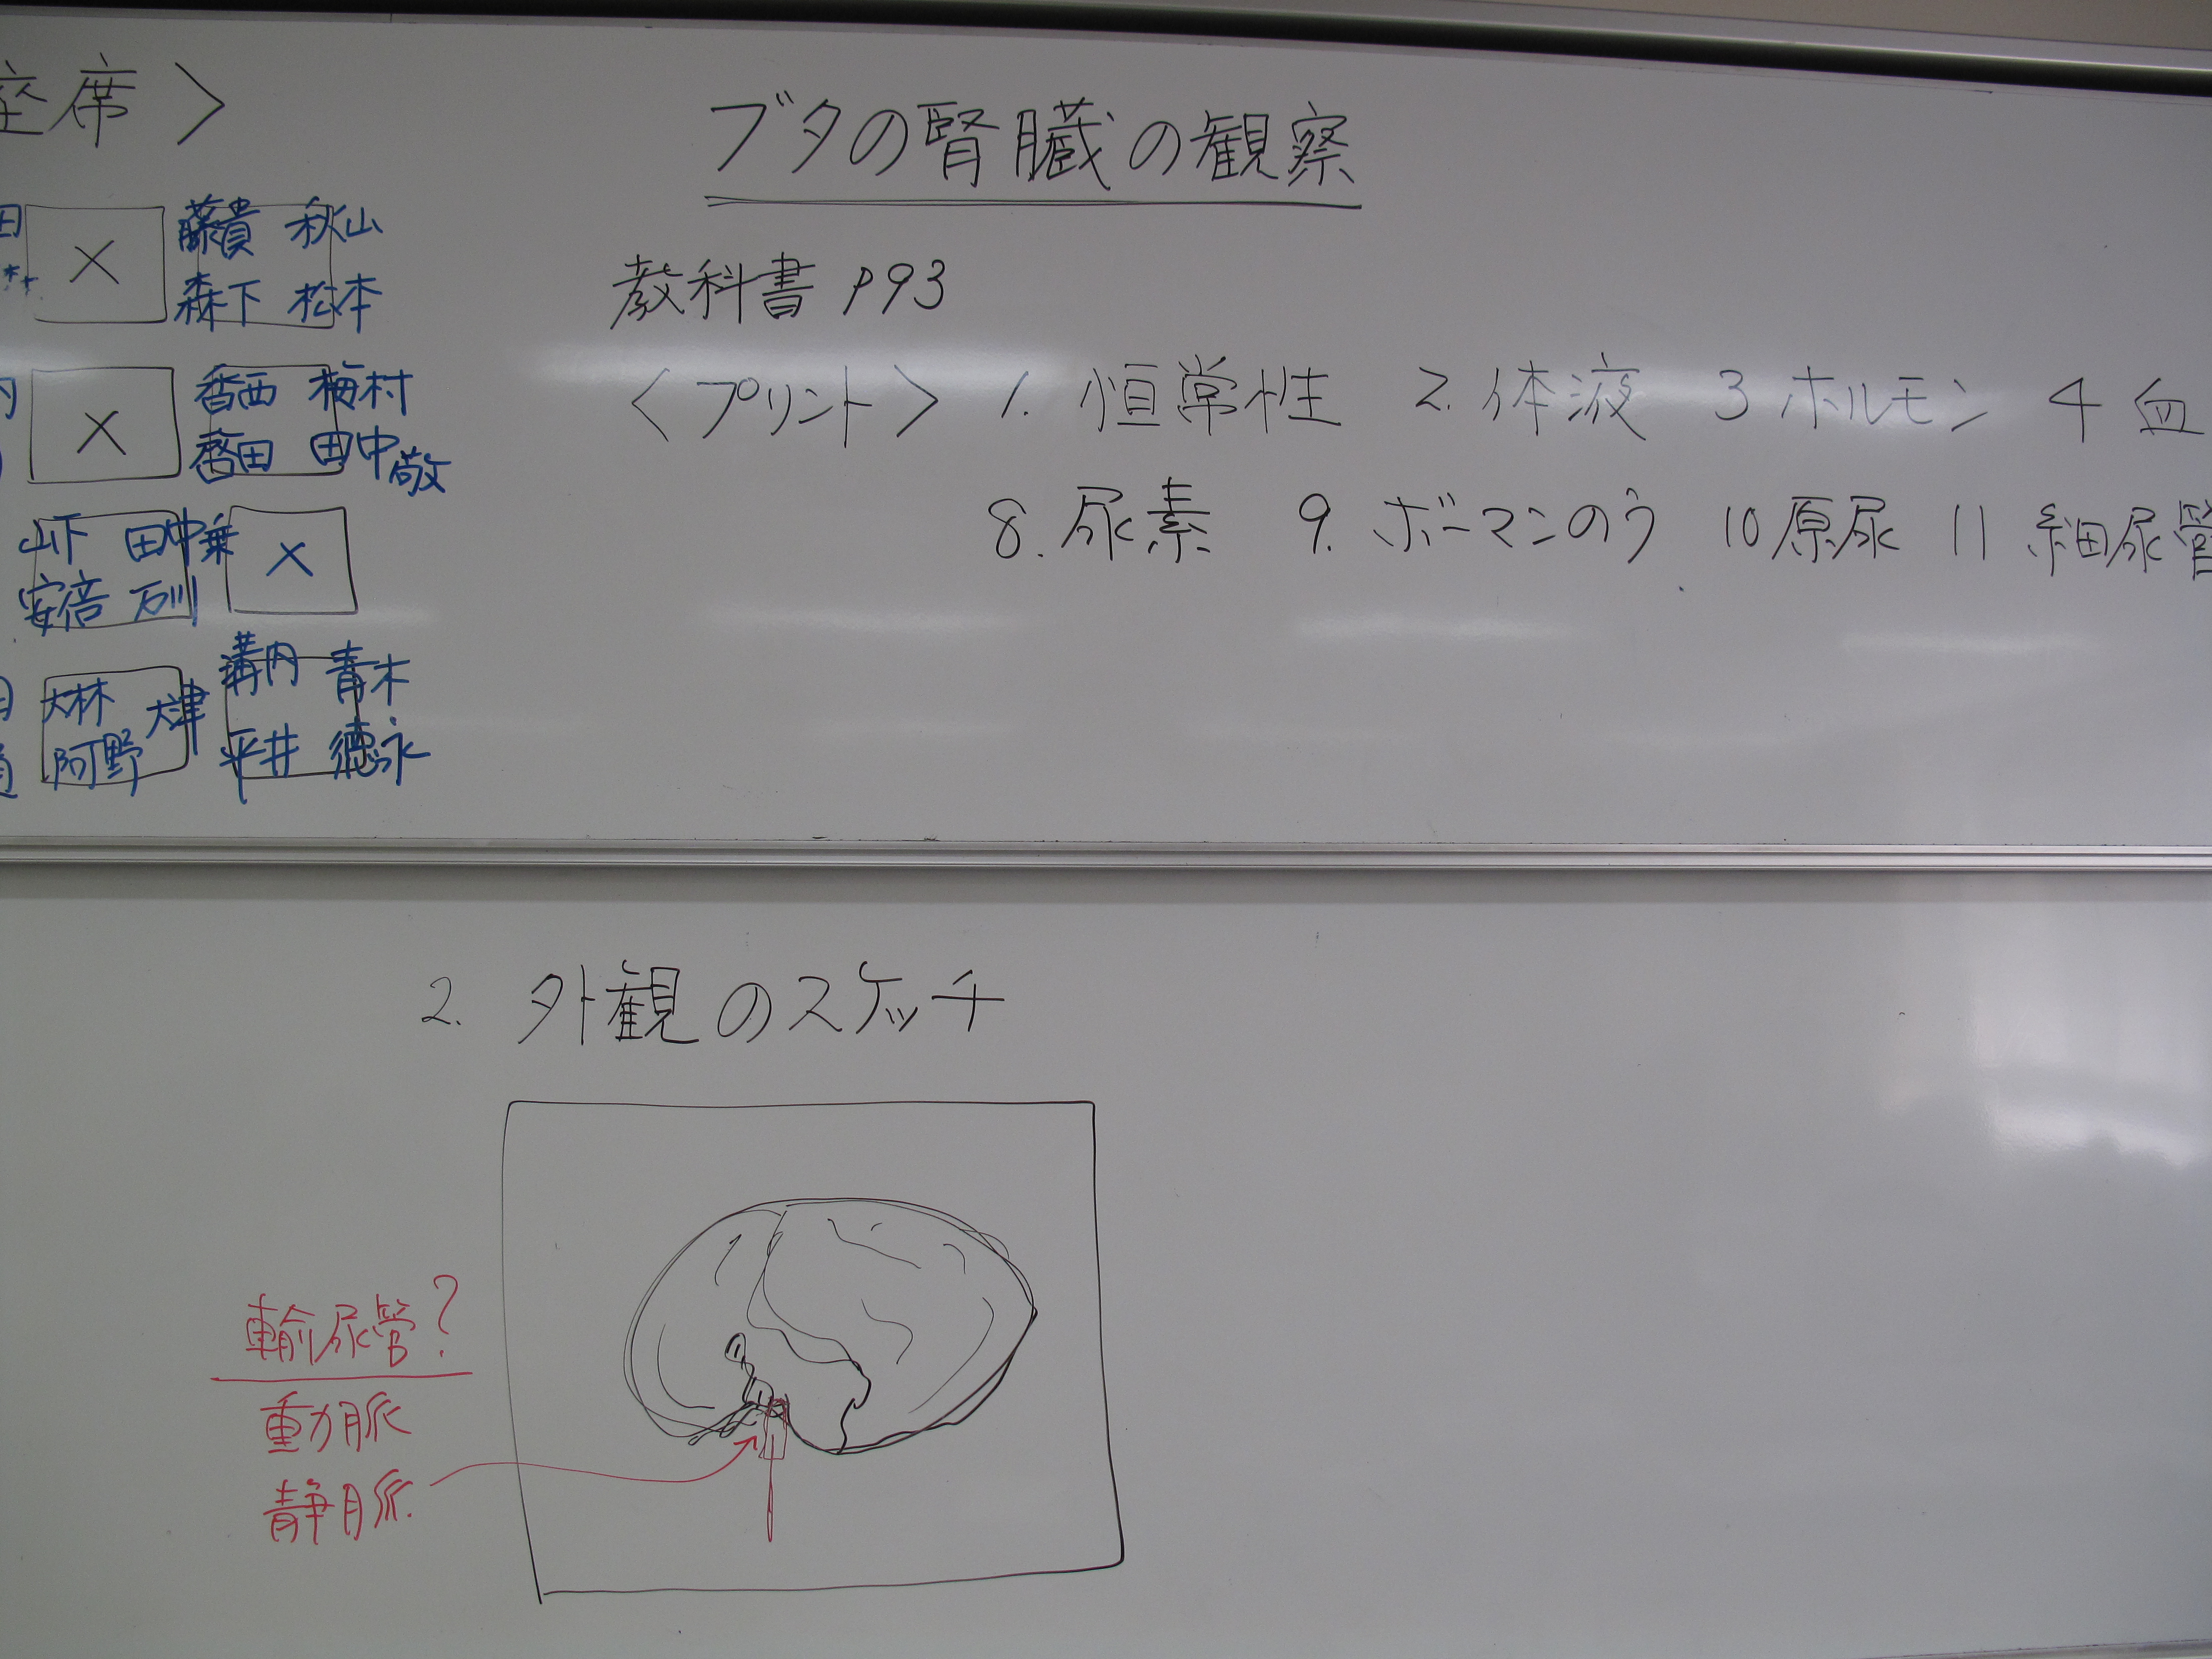 座席>
田
藤貴 秋山
森下 松本
内
香西 梅村
田中敬
山下 田中乗
安倍 石川
大林 大津
阿野
溝内 青木
平井 徳永
ブタの腎臓の観察
教科書 P93
<プリント> 1. 恒常性 2. 体液 3 ホルモン 4 血
8. 尿素 9. ボーマンのう 10 原尿 11 細尿管
2. 外観のスケッチ
輸尿管?
動脈
静脈